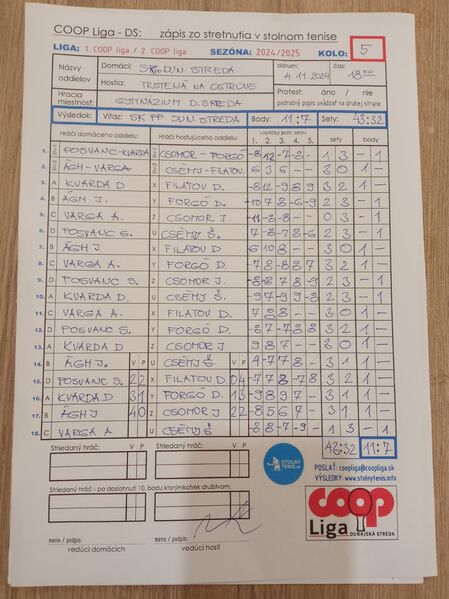 COOP Liga - DS: zápis zo stretnutia v stolnom tenise
LIGA: 1. COOP liga / 2. COOP liga SEZÓNA: 2024/2025 KOLO: 5
Názvy oddielov Domáci: DUN. STREDA dátum: 4.11.2024 čas: 18
Hostia: TRSTENÁ NA OSTROVE
Hracia miestnosť: GYMNÁZIUM D. STREDA Protest: áno/nie podrobný popis uvádzať na druhej strane
Výsledok: Víťaz: SK PP DUN. STREDA Body: 11:7 Sety: 43:32
Hráči domáceho oddielu: Hráči hosťujúceho oddielu: Loptičky jedn. setov 1. 2. 3. 4. 5. sety body
1. POSVANC-KVARDA CSOMOR-FORGÓ -8 12 -7 -8 - 1 3 - 1
2. ÁGH-VARGA CSÉMY-FILATOV 6 9 6 - 3 0 1 -
3. A KVARDA D X FILATOV D. -8 12 -9 8 9 3 2 1 -
4. B ÁGH J. Y FORGÓ D. -10 7 8 -6 -9 2 3 - 1
5. C VARGA A. Z CSOMOR J -11 -8 -8 - 0 3 - 1
6. D POSVANC S. U CSÉMY Š. 7 -8 -7 8 -6 2 3 - 1
7. B ÁGH J X FILATOV D 6 10 8 - 3 0 1 -
8. C VARGA A. Y FORGÓ D. -7 8 -8 8 7 3 2 1 -
9. D POSVANC S. Z CSOMOR J
10. A KVARDA D. U CSÉMY Š. -9 7 -9 9 -8 2 3 - 1
11. C VARGA A. X FILATOV D. 7 8 8 - 3 0 1 -
12. D POSVANC S. Y FORGÓ D. 8 -7 -7 8 8 3 2 1 -
13. A KVARDA D Z CSOMOR J 9 8 7 - 3 0 1 -
14. B ÁGH J. V P U CSÉMY Š V P -4 7 7 8 - 3 1 1 -
15. D POSVANC S. 2 2 X FILATOV D 0 4 -7 7 8 -7 8 3 2 1 -
16. A KVARDA D 3 1 Y FORGÓ D. 1 3 -9 8 9 7 - 3 1 1 -
17. B ÁGH J 4 0 Z CSOMOR J 2 2 -8 5 6 7 - 3 1 1 -
18. C VARGA A U CSÉMY Š 8 -8 -7 -9 - 1 3 - 1
43:32 11:7
Striedaný hráč: V P Striedaný hráč: V P
STOLNÝ TENIS
POSLAŤ: coopliga@coopliga.sk
VÝSLEDKY: www.stolnytenis.info
Striedaný hráč - po dosiahnutí 10. bodu ktorýmkoľvek družstvom:
coop
Liga DUNAJSKÁ STREDA
meno / podpis: meno / podpis:
vedúci domácich vedúci hostí